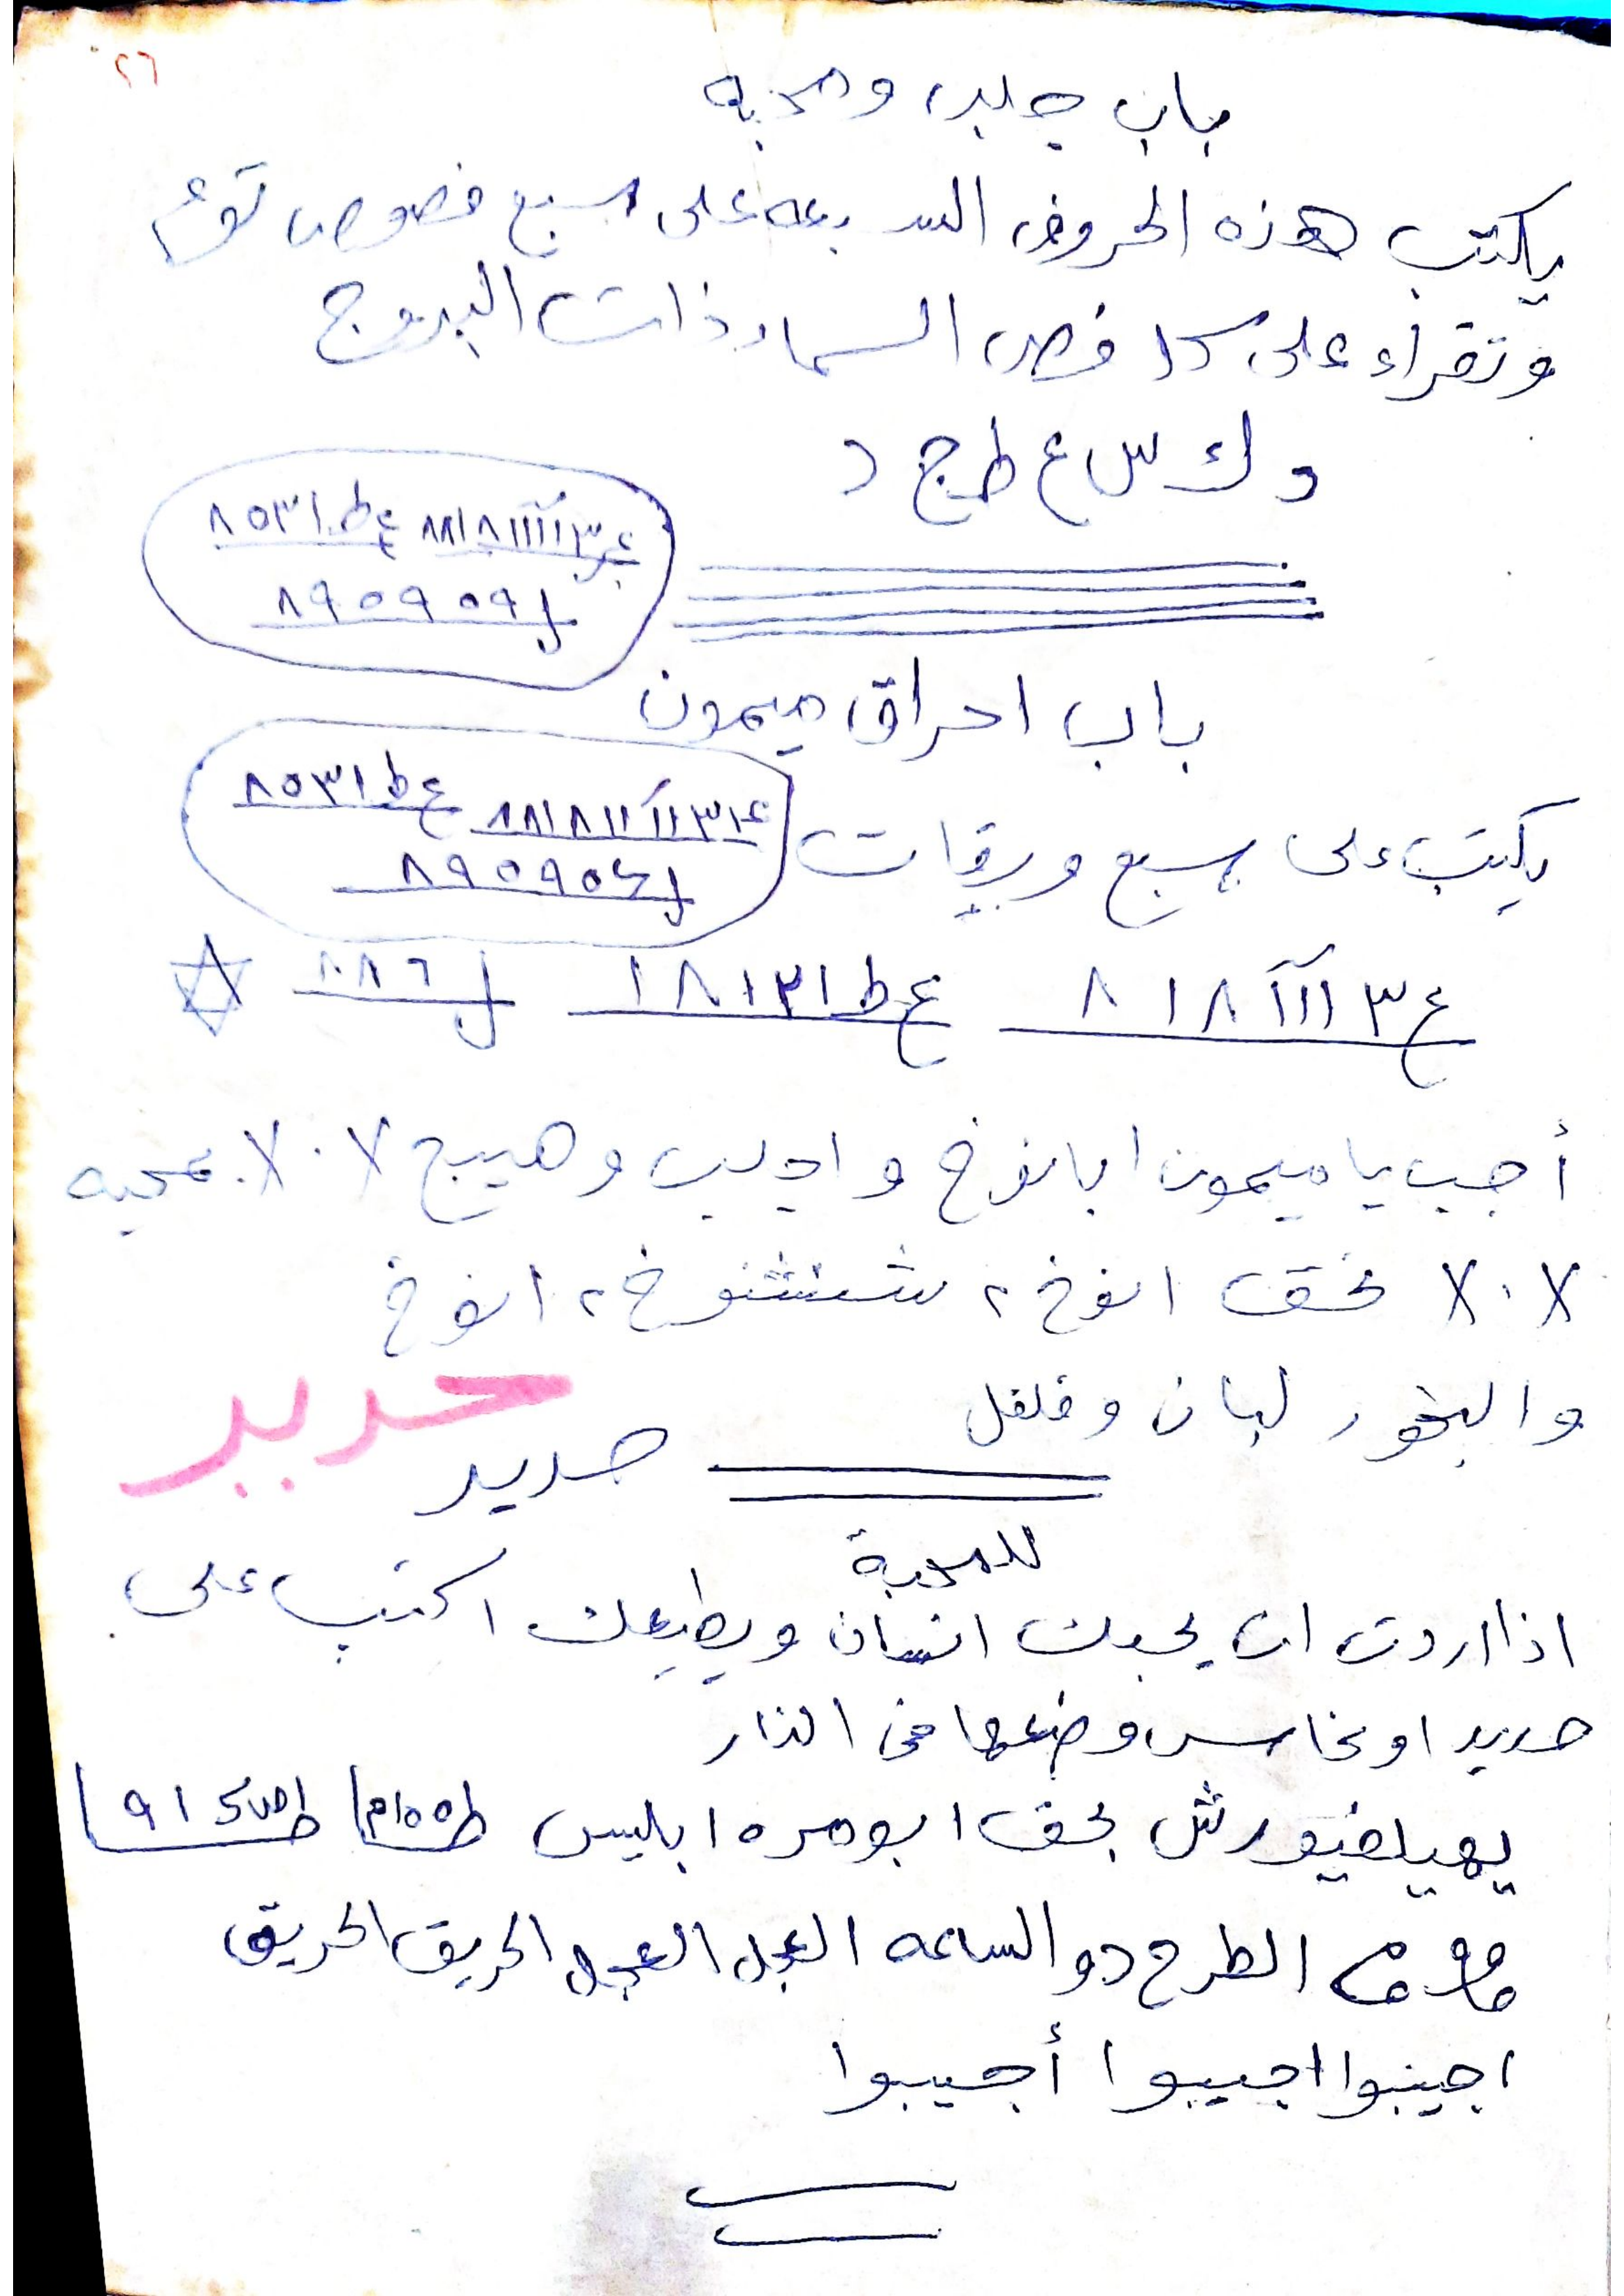 ٢٦
باب جلب ومحبه
يكتب هذه الحروف السبعه على سبع فصوص ثوم
وتقراء على كل فص السماء ذات البروج
د ك س ع ط ج د
ع٣١١١٨١٨٨ عط٥٣١٨
ل٨٩٥٩٥٩
باب احراق ميمون
يكتب على سبع ورقات
ع٣١١١٨١٨٨ عط٥٣١٨
ع٣١١١٨١٨ عط١٣١٨١
أجب يا ميمون ابانوخ واجلب وهيج ٧٠٧ بمحبه
٧٠٧ بحق انوخ ٢ شنشنوخ ٢ انوخ
والبخور لبان وفلفل
حديد
حديد
للمحبة
اذا اردت ان يحبك انسان ويطيعك اكتب على
حديد او نحاس وضعها في النار
بحق ابو مره ابليس
الساعه العجل العجل الحريق الحريق
اجيبوا اجيبوا أجيبوا